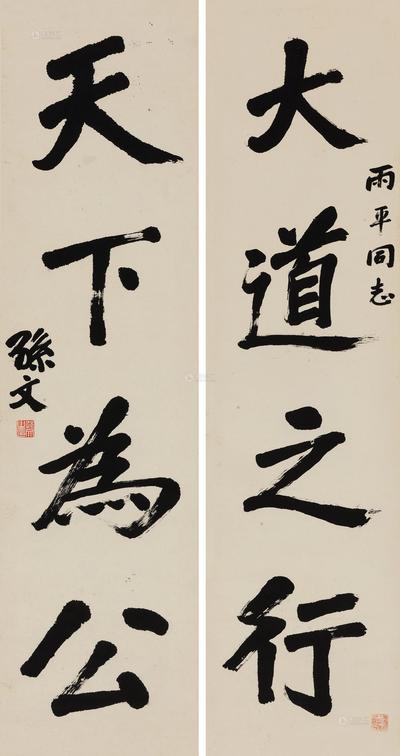 大道之行
雨平同志
天下為公
孫文